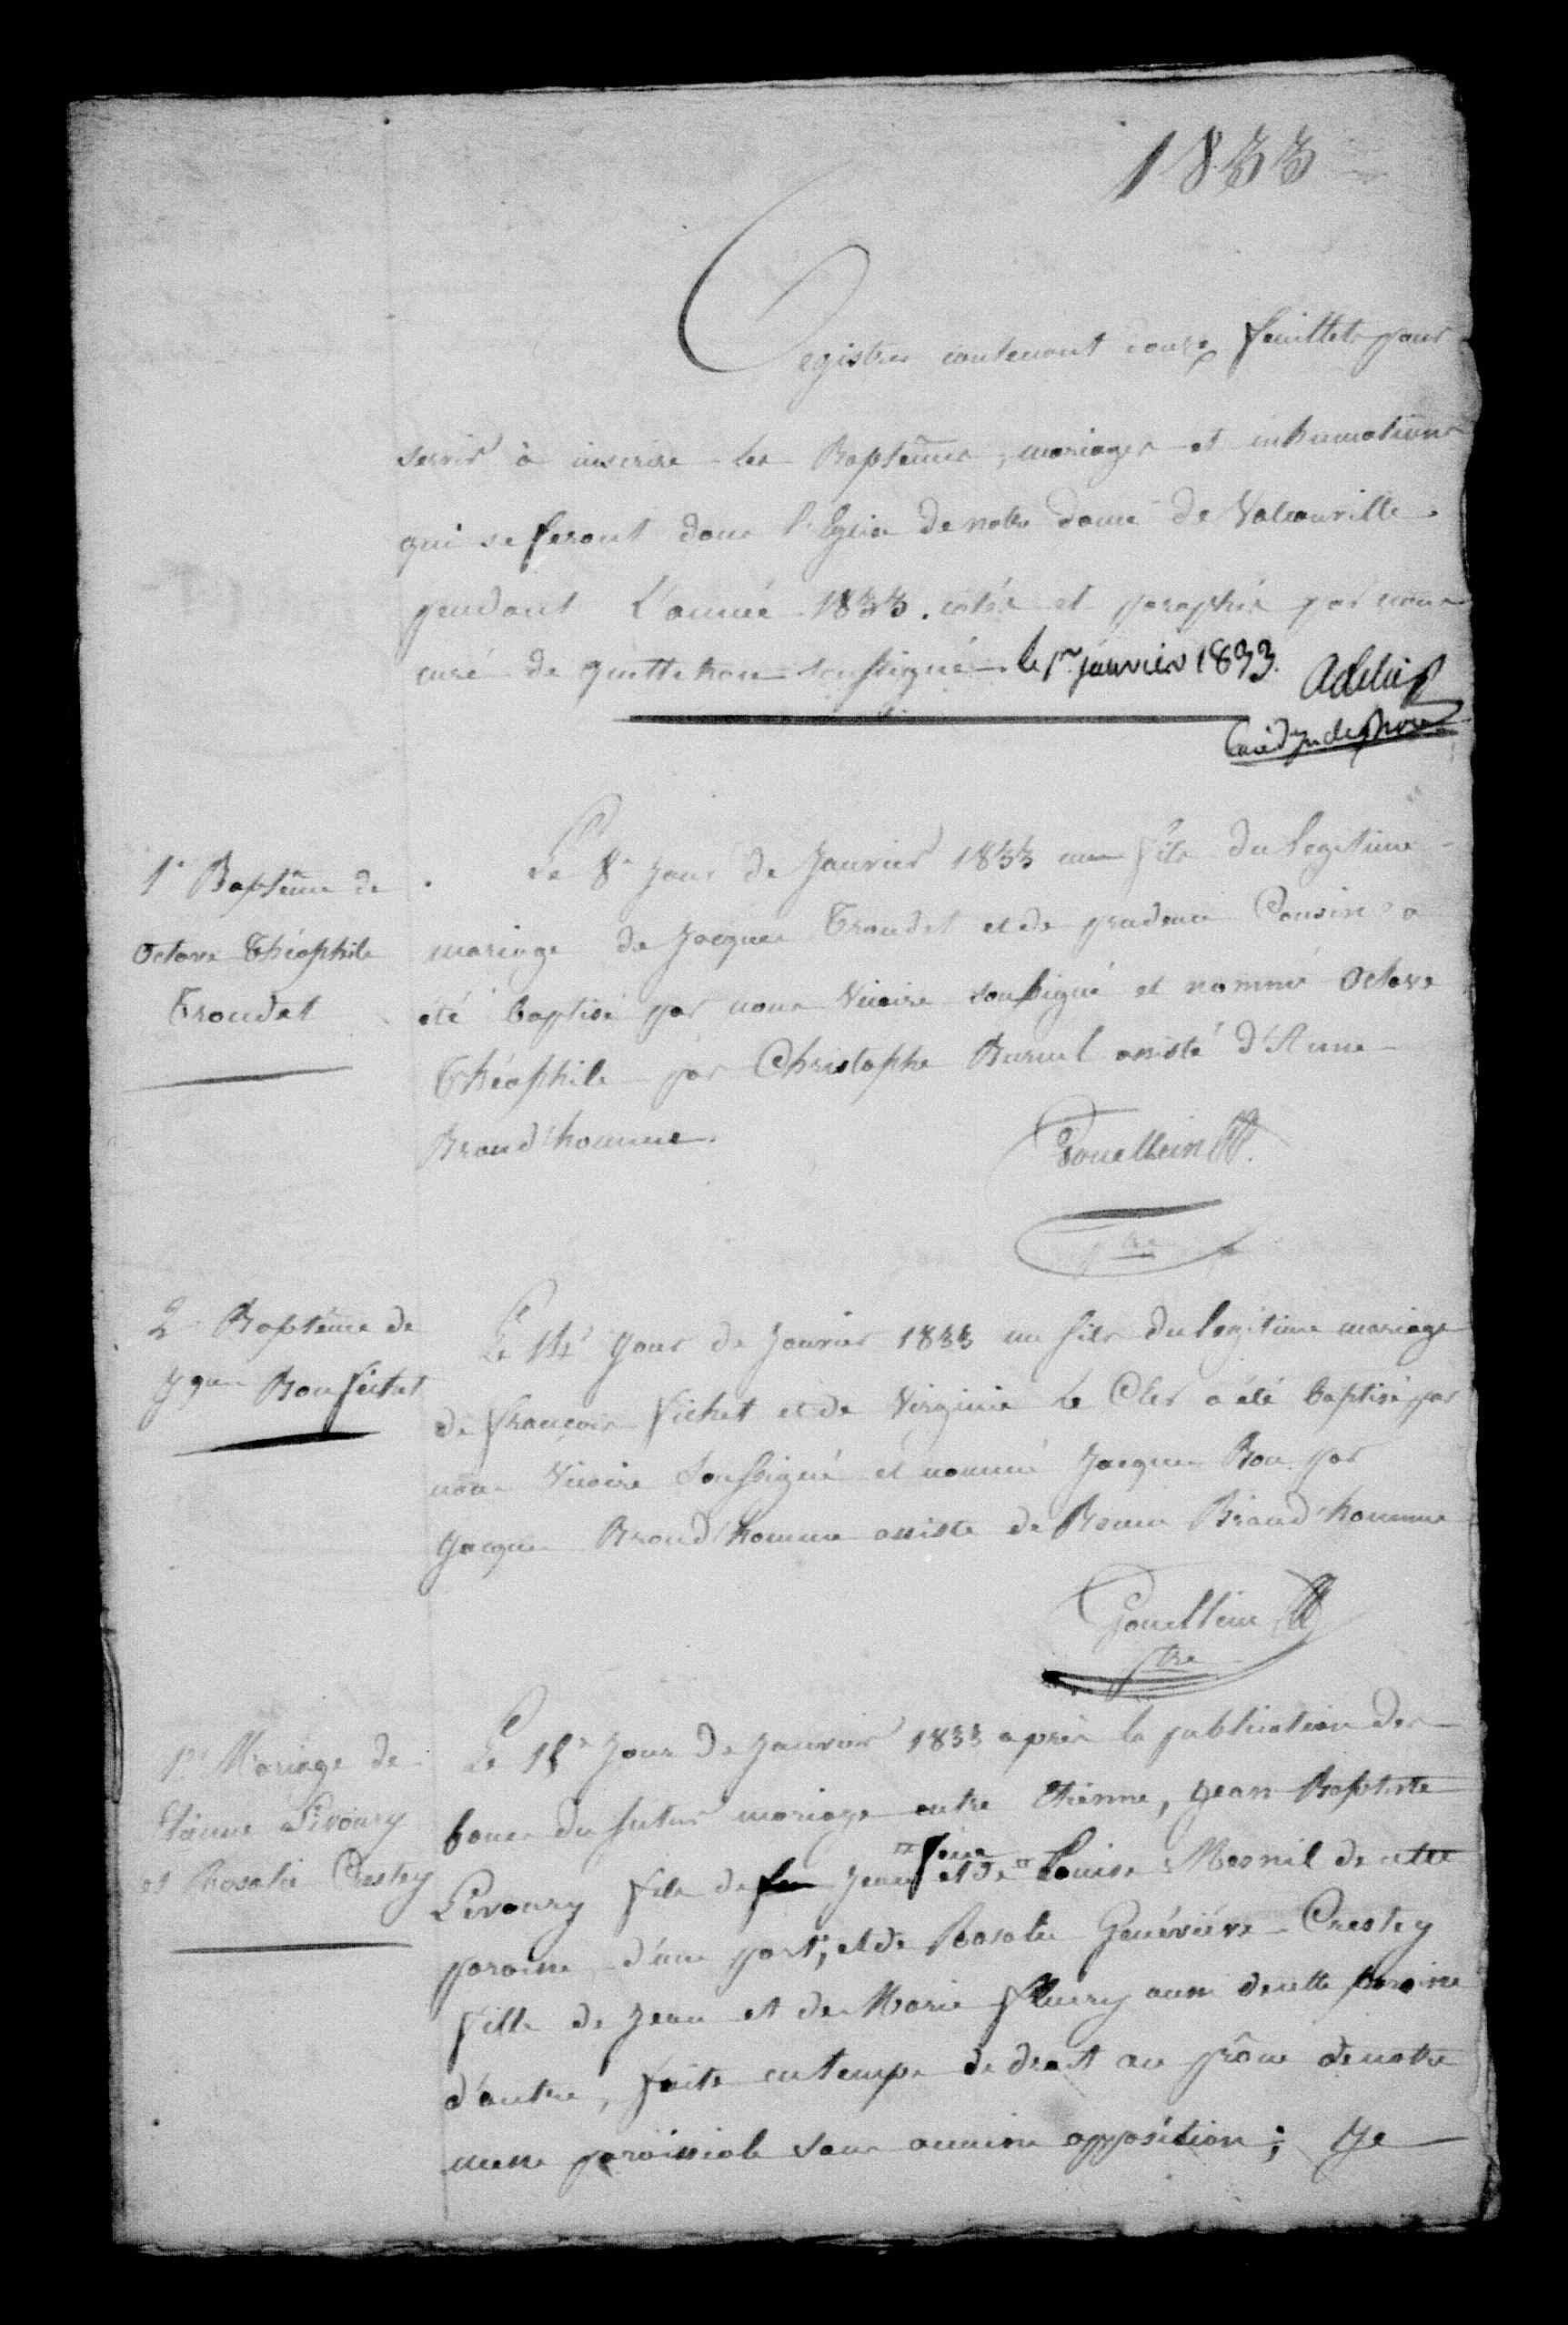 1833
Registre contenant douze feuillets pour
servir à inscrire les Baptêmes, mariages et inhumations
qui se feront dans l'Eglise de notre dame de Valcanville
pendant L'année 1833. cotés et paraphés par nous
curé de quettehou soussigné le 1er janvier 1833.
1er Baptême de
Octave Théophile
Troudet
Le 8e Jour de Janvier 1833 un fils du legitime
mariage de Jacques Troudet et de prudence Cousin a
été baptisé par nous Vicaire soussigné et nommé Octave
Théophile par Christophe Burnel assisté d'Anne
Braud'homme.
Gouellein
ptre
2 Baptême de
Jques Bon fichet
Le 14e Jour de Janvier 1833 un fils du legitime mariage
de françois fichet et de Virginie Le Cler a été baptisé par
nous Vicaire Soussigné et nommé Jacques Bon par
Jacques Braud'homme assisté de Braud'homme
Gouelleine
ptre
1er Mariage de
Etienne Pivoury
et Rosalie Crestey
Le 15e Jour de Janvier 1833 après la publication des
bans du futur mariage entre Etienne, Jean Baptiste
Pivoury fils de Jean et de feue Louise Mesnil de cette
paroisse d'une part; et de Rosalie Généviéve Crestey
fille de Jean et de Marie fleury aussi de cette paroisse
d'autre, faite en temps de droit au prône de notre
messe paroissiale sans aucune opposition; Je